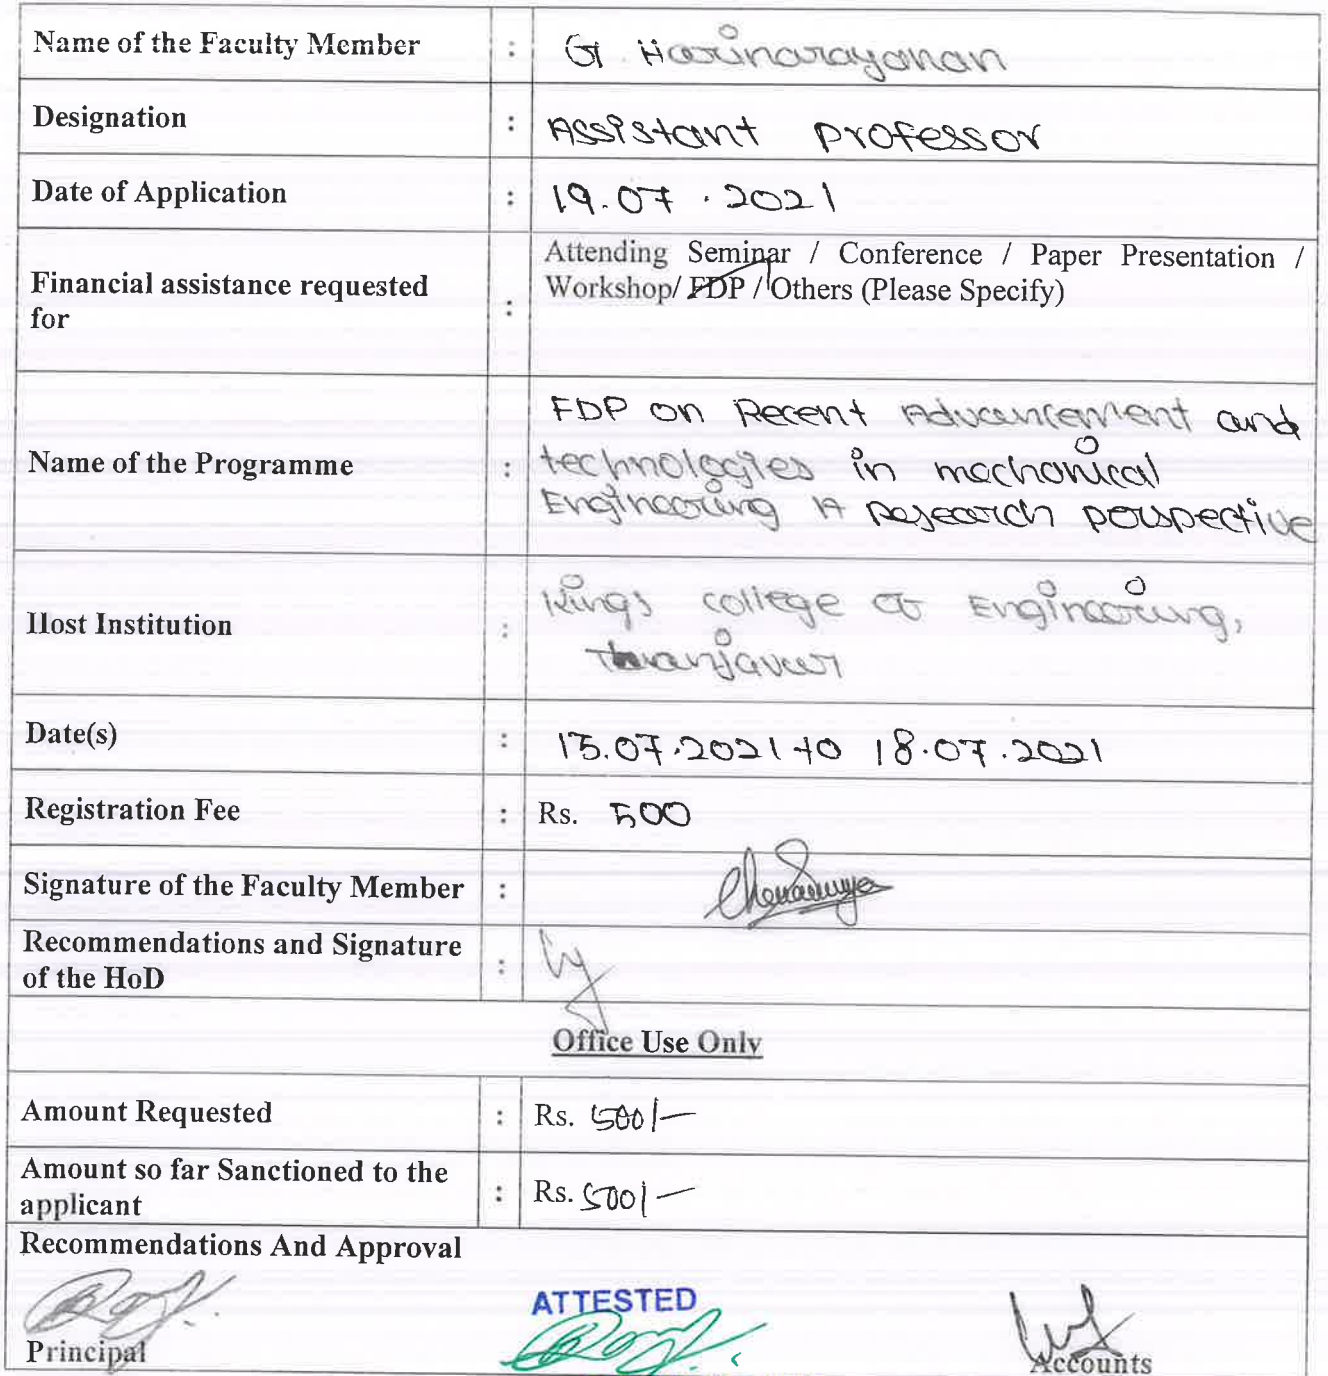 Name of the Faculty Member : G. Harinarayanan
Designation : Assistant professor
Date of Application : 19.07.2021
Financial assistance requested for : Attending Seminar / Conference / Paper Presentation /
Workshop/ FDP / Others (Please Specify)
Name of the Programme : FDP on Recent Advancement and
technologies in mechanical
Engineering A Research perspective
Host Institution : Kings college of Engineering,
Thanjavur
Date(s) : 15.07.2021 to 18.07.2021
Registration Fee : Rs. 500
Signature of the Faculty Member :
Recommendations and Signature
of the HoD :
Office Use Only
Amount Requested : Rs. 500/-
Amount so far Sanctioned to the
applicant : Rs. 500/-
Recommendations And Approval
ATTESTED
Principal
Accounts